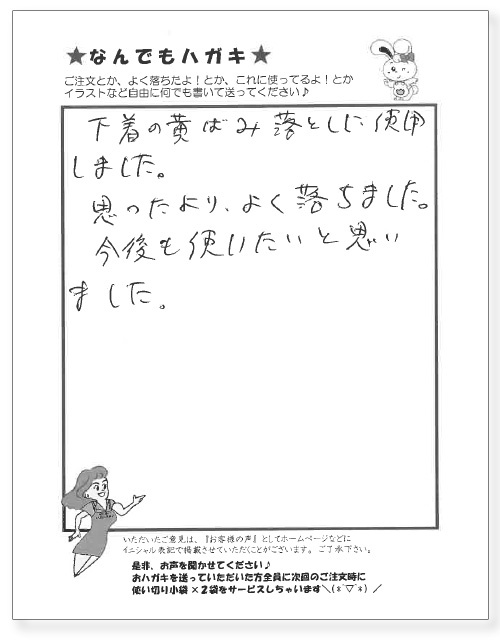 ★なんでもハガキ★
ご注文とか、よく落ちたよ！とか、これに使ってるよ！とか
イラストなど自由に何でも書いて送ってください♪
下着の黄ばみ落としに使用
しました。
思ったより、よく落ちました。
今後も使いたいと思い
ました。
いただいたご意見は、『お客様の声』としてホームページなどに
イニシャル表記で掲載させていただくことがございます。ご了承下さい。
是非、お声を聞かせてください♪
おハガキを送っていただいた方全員に次回のご注文時に
使い切り小袋×2袋をサービスしちゃいます＼(*´▽`*)／